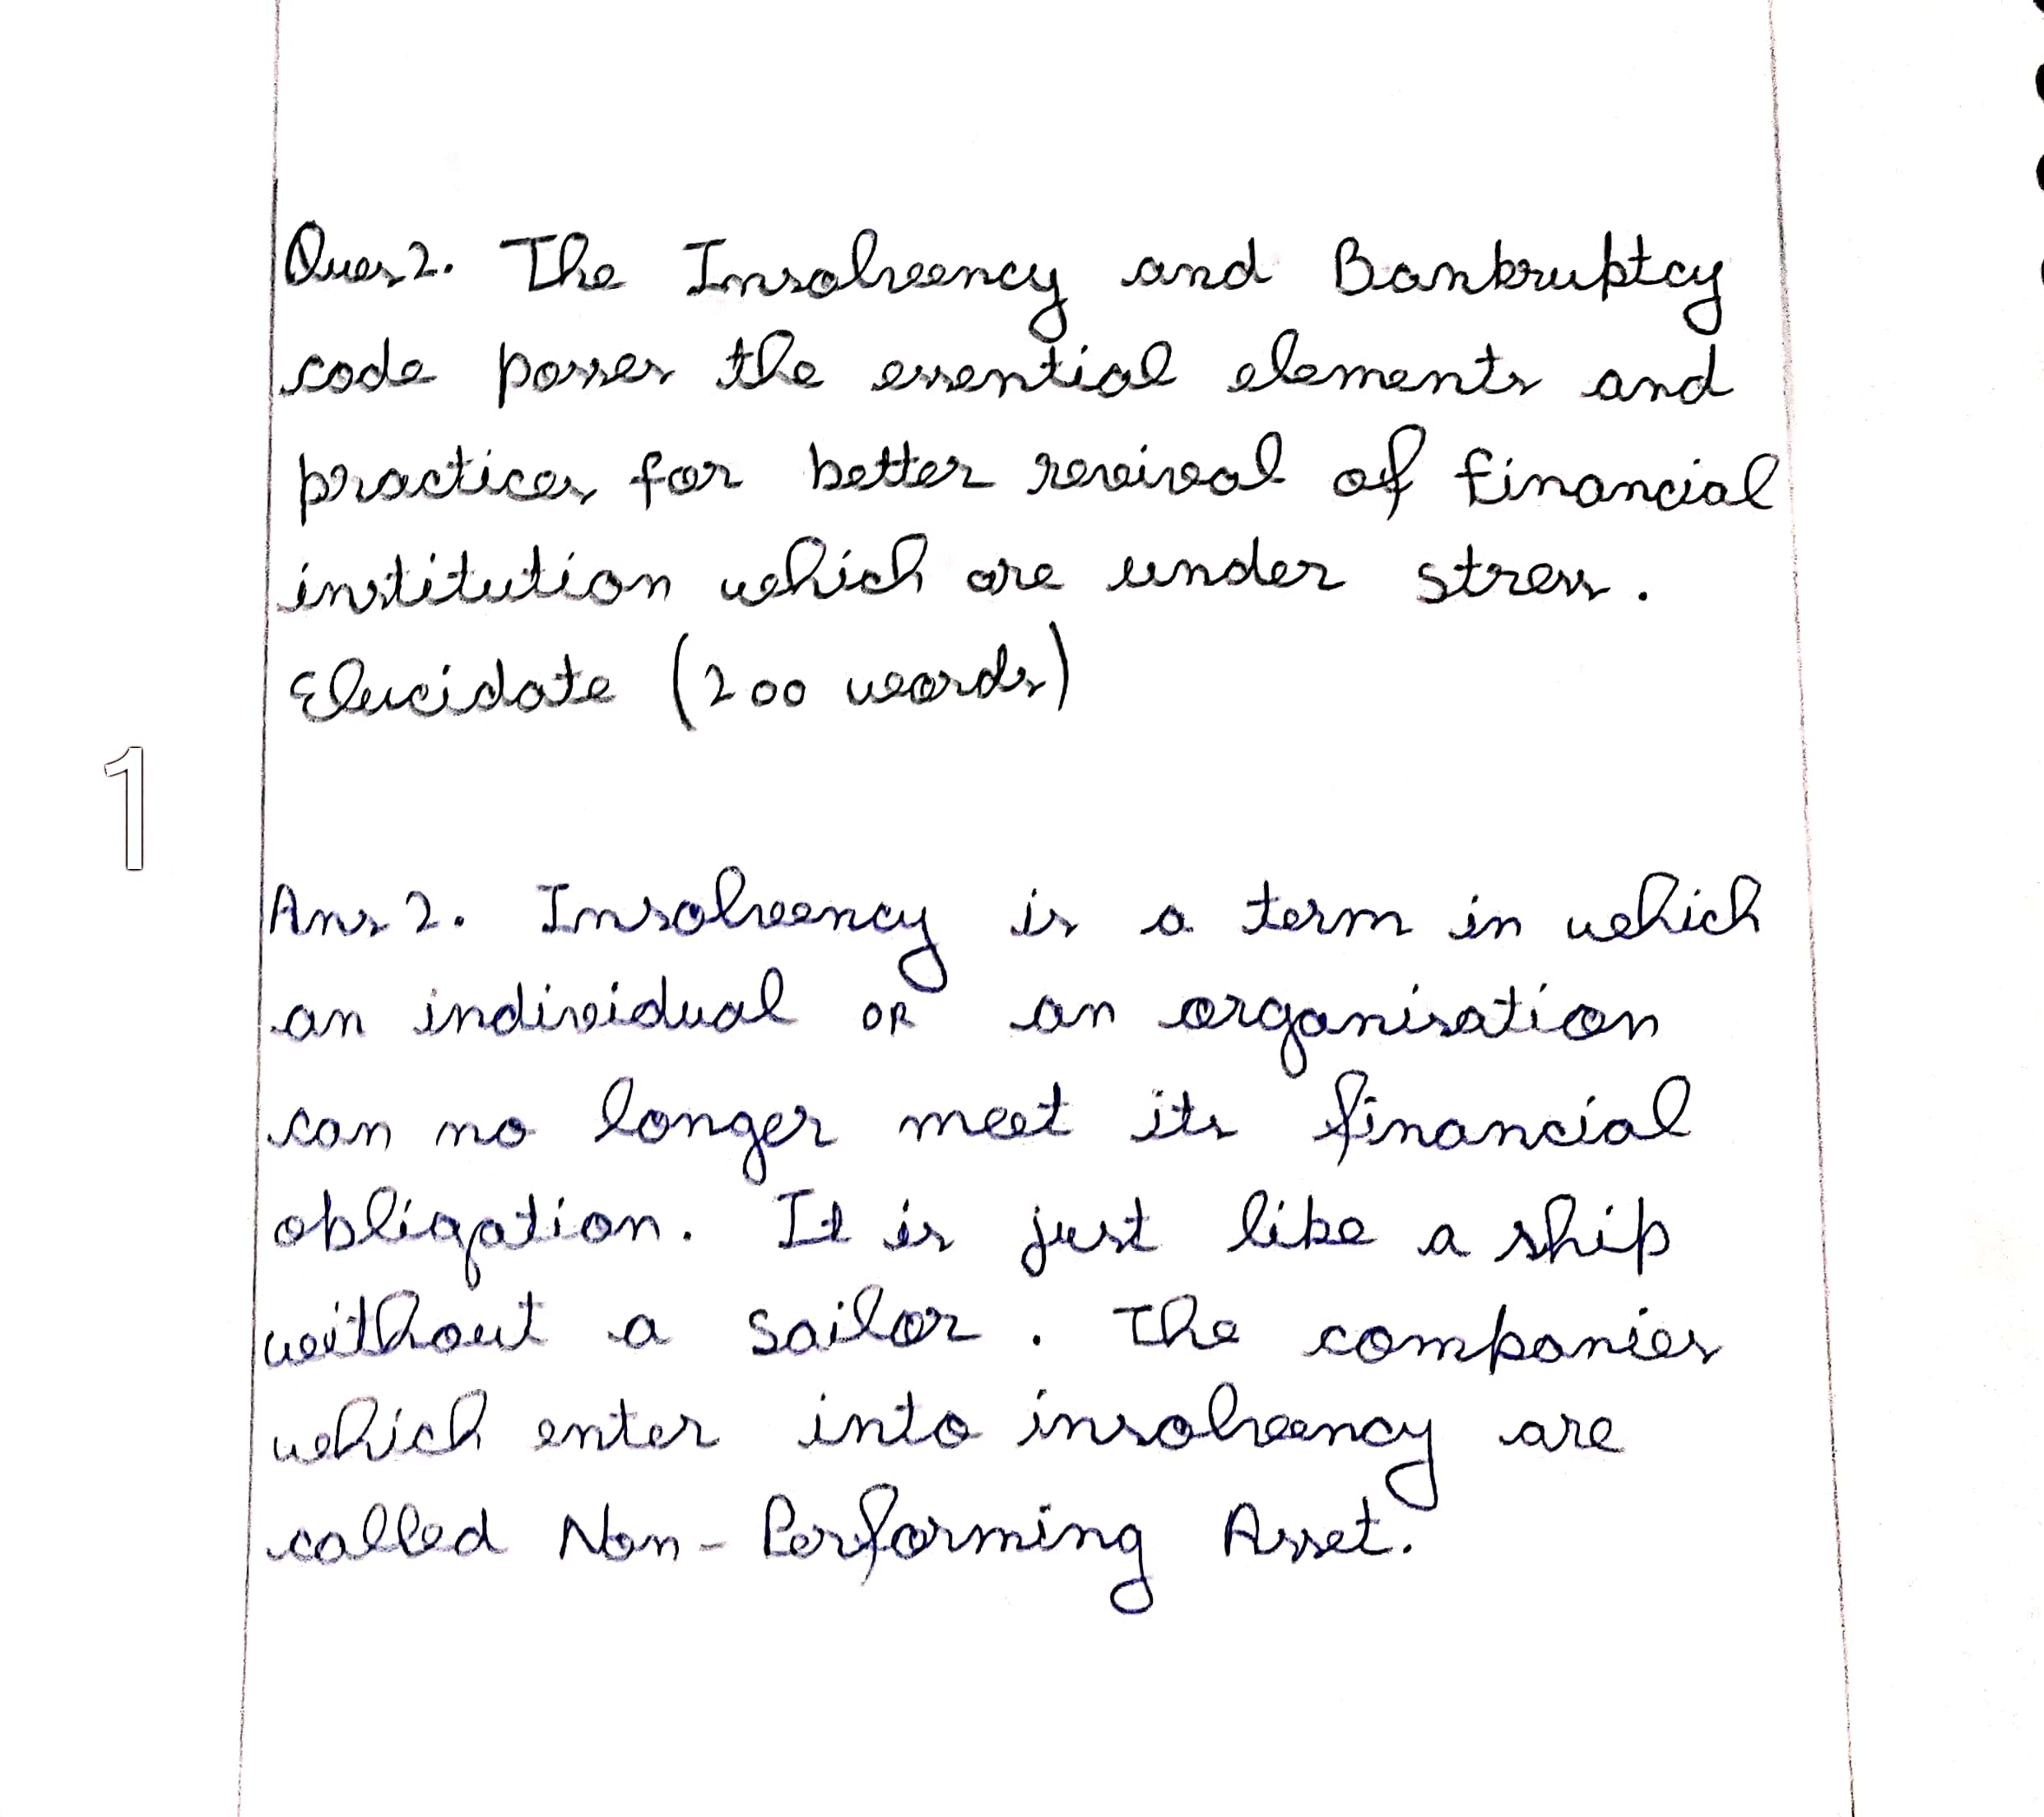 Ques 2. The Insolvency and Bankruptcy
code posses the essential elements and
practices for better revival of financial
institution which are under stress.
Elucidate (200 words)
1
Ans 2. Insolvency is a term in which
an individual OR an organisation
can no longer meet its financial
obligation. It is just like a ship
without a sailor. The companies
which enter into insolvency are
called Non-Performing Asset.